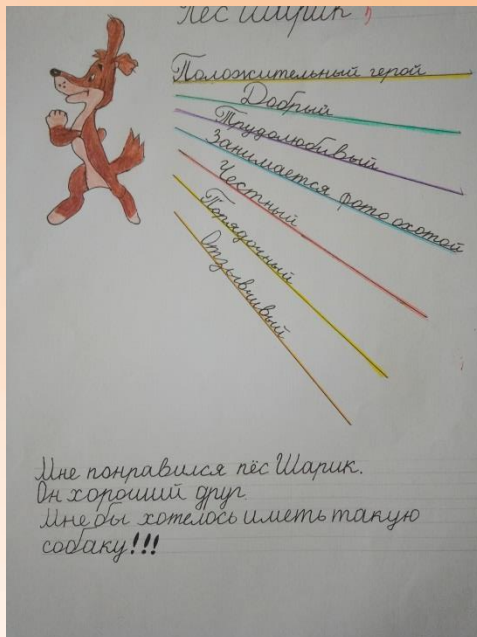 Пёс Шарик
Положительный герой
Добрый
Трудолюбивый
Занимается фото охотой
Честный
Порядочный
Отзывчивый
Мне понравился пёс Шарик.
Он хороший друг
Мне бы хотелось иметь такую
собаку!!!